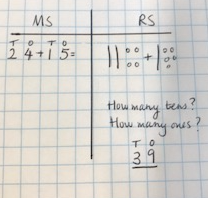 MS RS
T O T O
2 4 + 1 5 =
+
How many tens?
How many ones?
T O
3 9